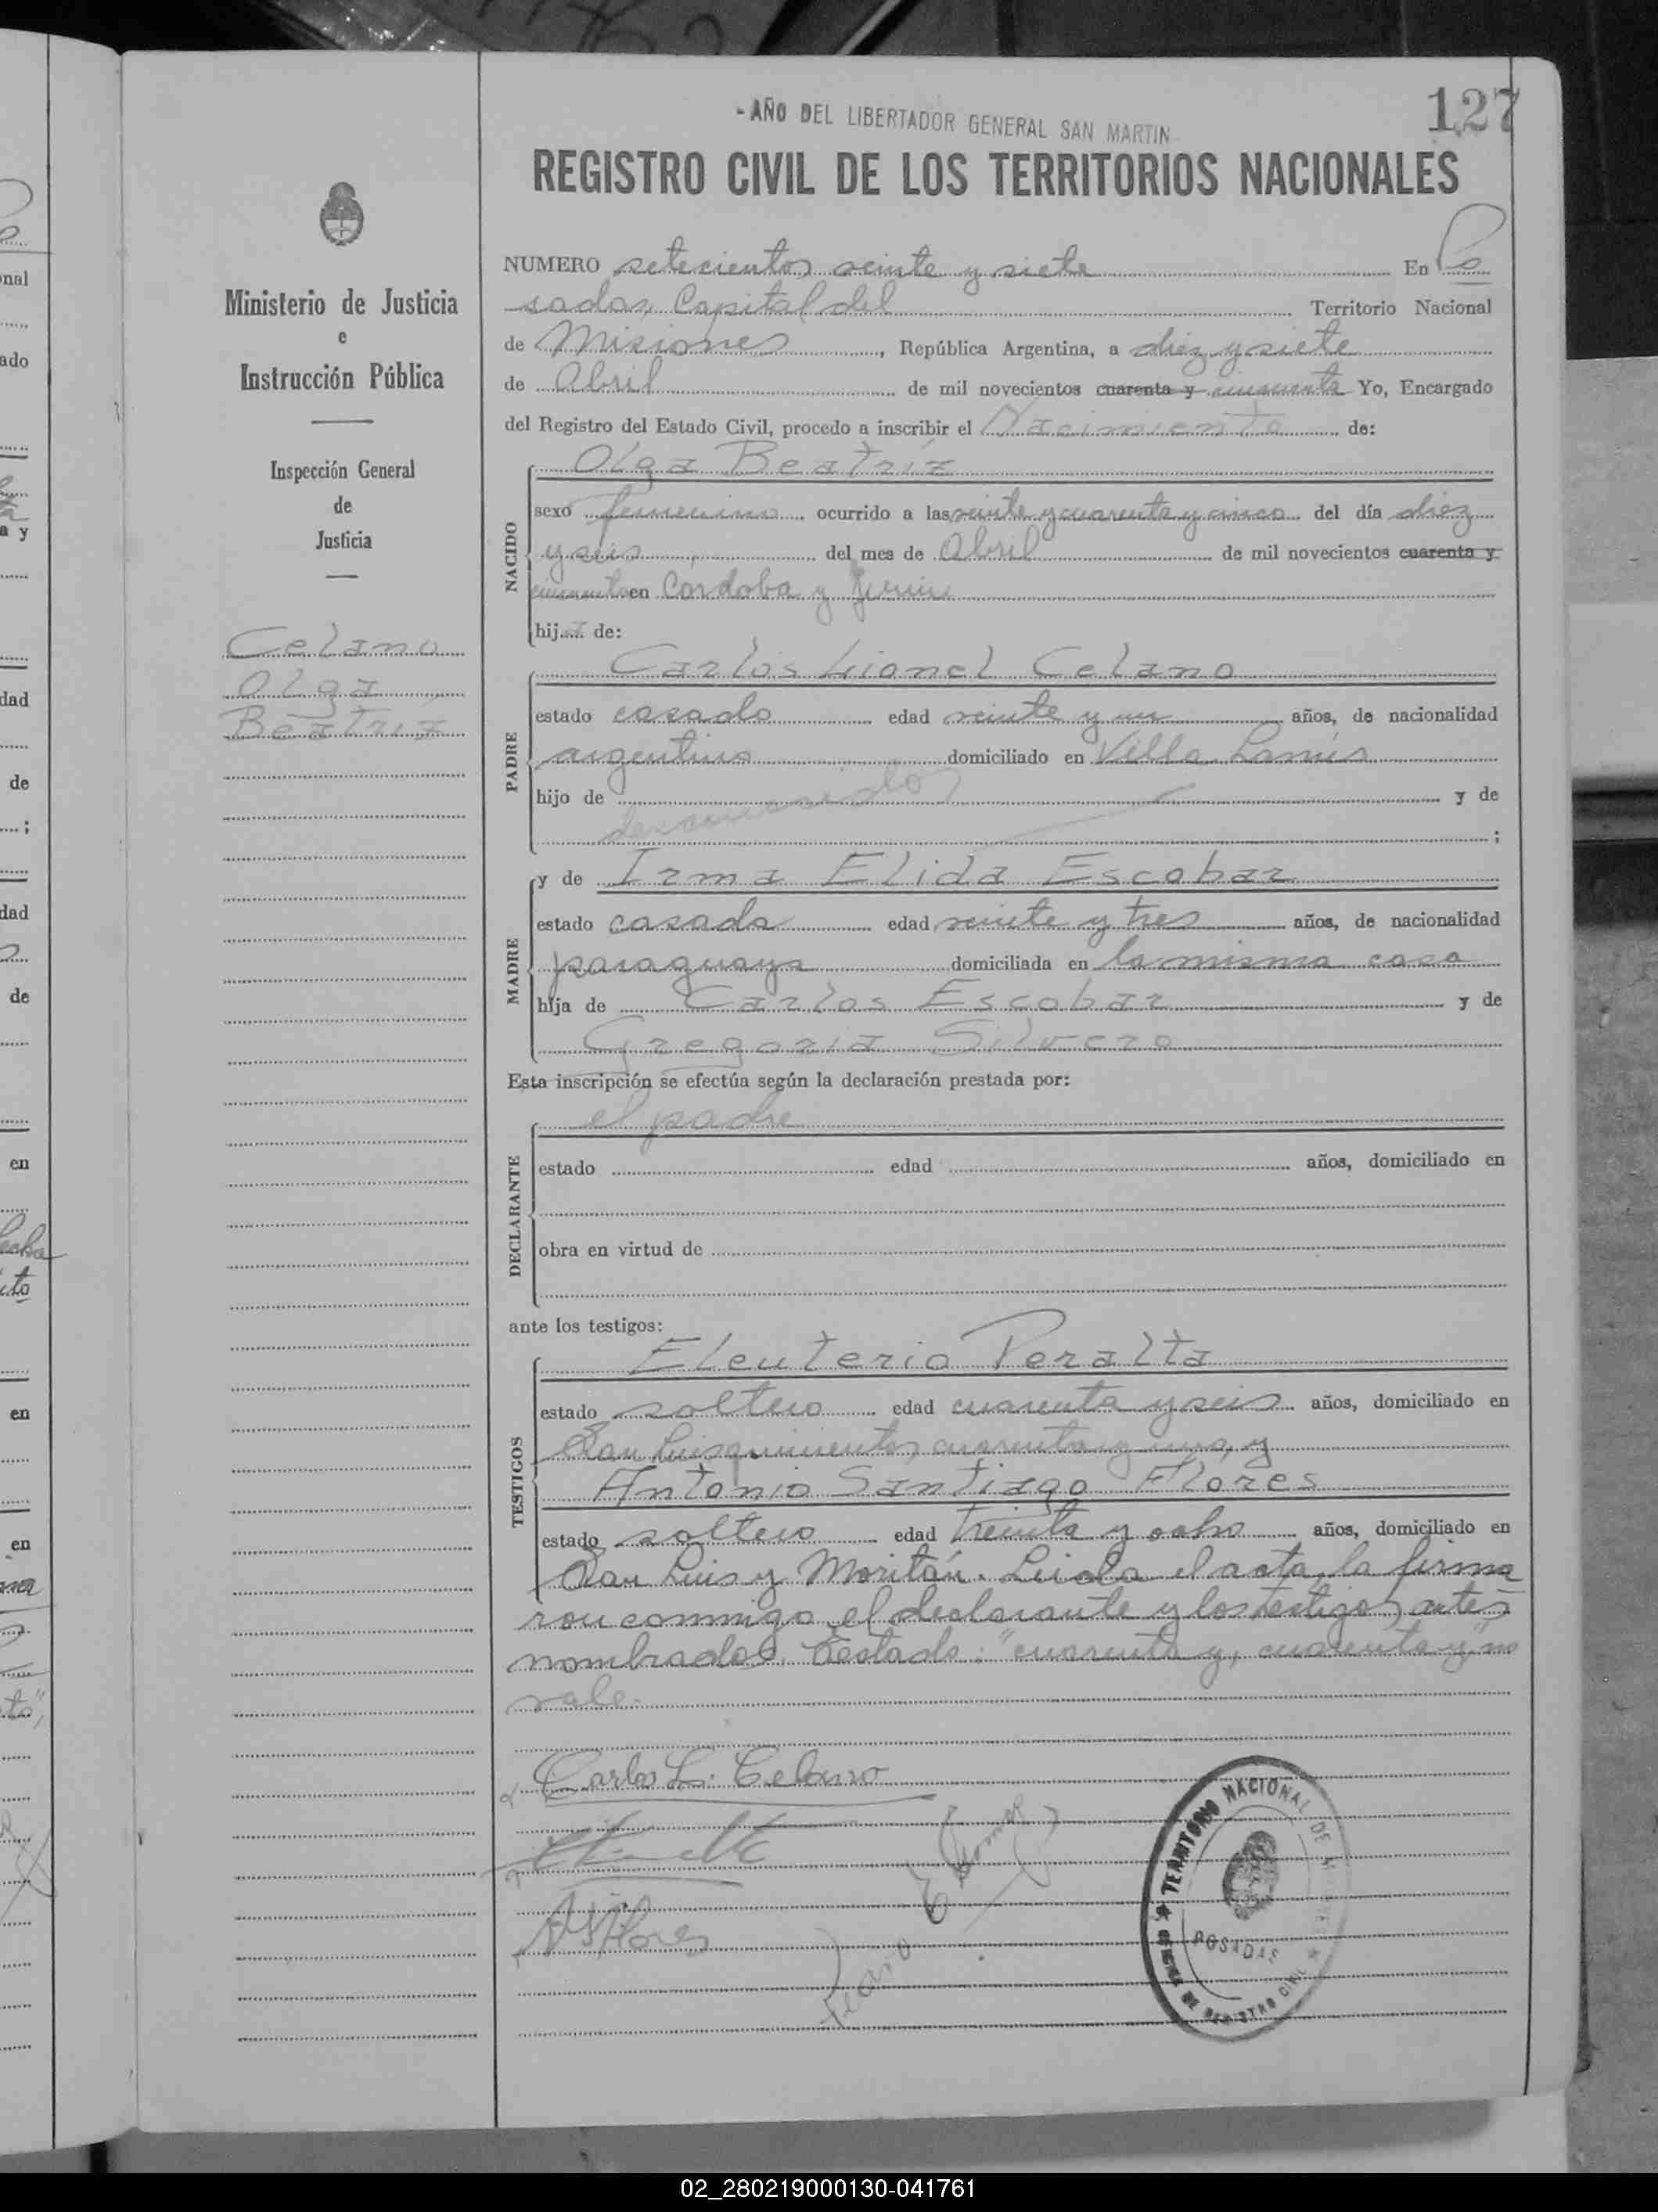 - AÑO DEL LIBERTADOR GENERAL SAN MARTIN
127
REGISTRO CIVIL DE LOS TERRITORIOS NACIONALES
Ministerio de Justicia
e
Instrucción Pública
Inspección General
de
Justicia
Celano
Olga
Beatriz
NUMERO setecientos veinte y siete En Po
sadas, Capital del Territorio Nacional
de Misiones, República Argentina, a diez y siete
de Abril de mil novecientos cuarenta y cincuenta Yo, Encargado
del Registro del Estado Civil, procedo a inscribir el Nacimiento de:
NACIDO
Olga Beatríz
sexo femenino ocurrido a las veinte y cuarenta y cinco del día diez
y seis, del mes de Abril de mil novecientos cuarenta y
cincuenta en Cordoba y Junin
hija de:
PADRE
Carlos Lionel Celano
estado casado edad veinte y un años, de nacionalidad
argentino domiciliado en Villa Lanús
hijo de desconocidos y de
;
MADRE
y de Irma Elida Escobar
estado casada edad veinte y tres años, de nacionalidad
paraguaya domiciliada en la misma casa
hija de Carlos Escobar y de
Gregoria Silvero
Esta inscripción se efectúa según la declaración prestada por:
DECLARANTE
el padre
estado edad años, domiciliado en
obra en virtud de
ante los testigos:
TESTIGOS
Eleuterio Peralta
estado soltero edad cuarenta y seis años, domiciliado en
San Luis quinientos cuarenta y uno, y
Antonio Santiago Flores
estado soltero edad treinta y ocho años, domiciliado en
San Luis y Moritán. Leida el acta, la firma
ron conmigo el declarante y los testigos antes
nombrados. Testado: "cuarenta y, cuarenta y" no
vale.
Carlos L. Celano
ASFlores
TERRITORIO NACIONAL DE MISIONES
POSADAS
DE REGISTRO CIVIL
02_280219000130-041761